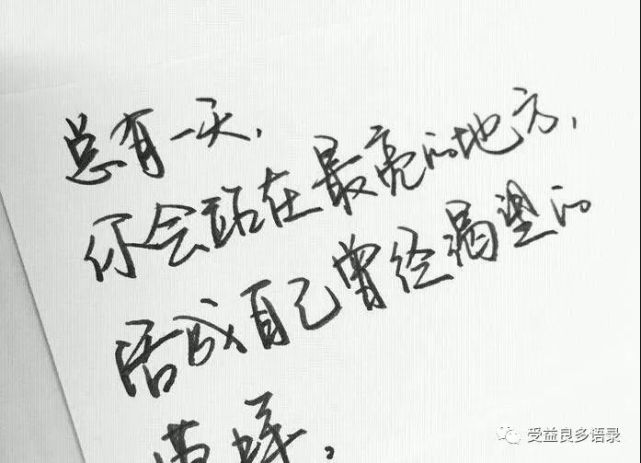 总有一天，
你会站在最亮的地方，
活成自己曾经渴望的
模样，
受益良多语录